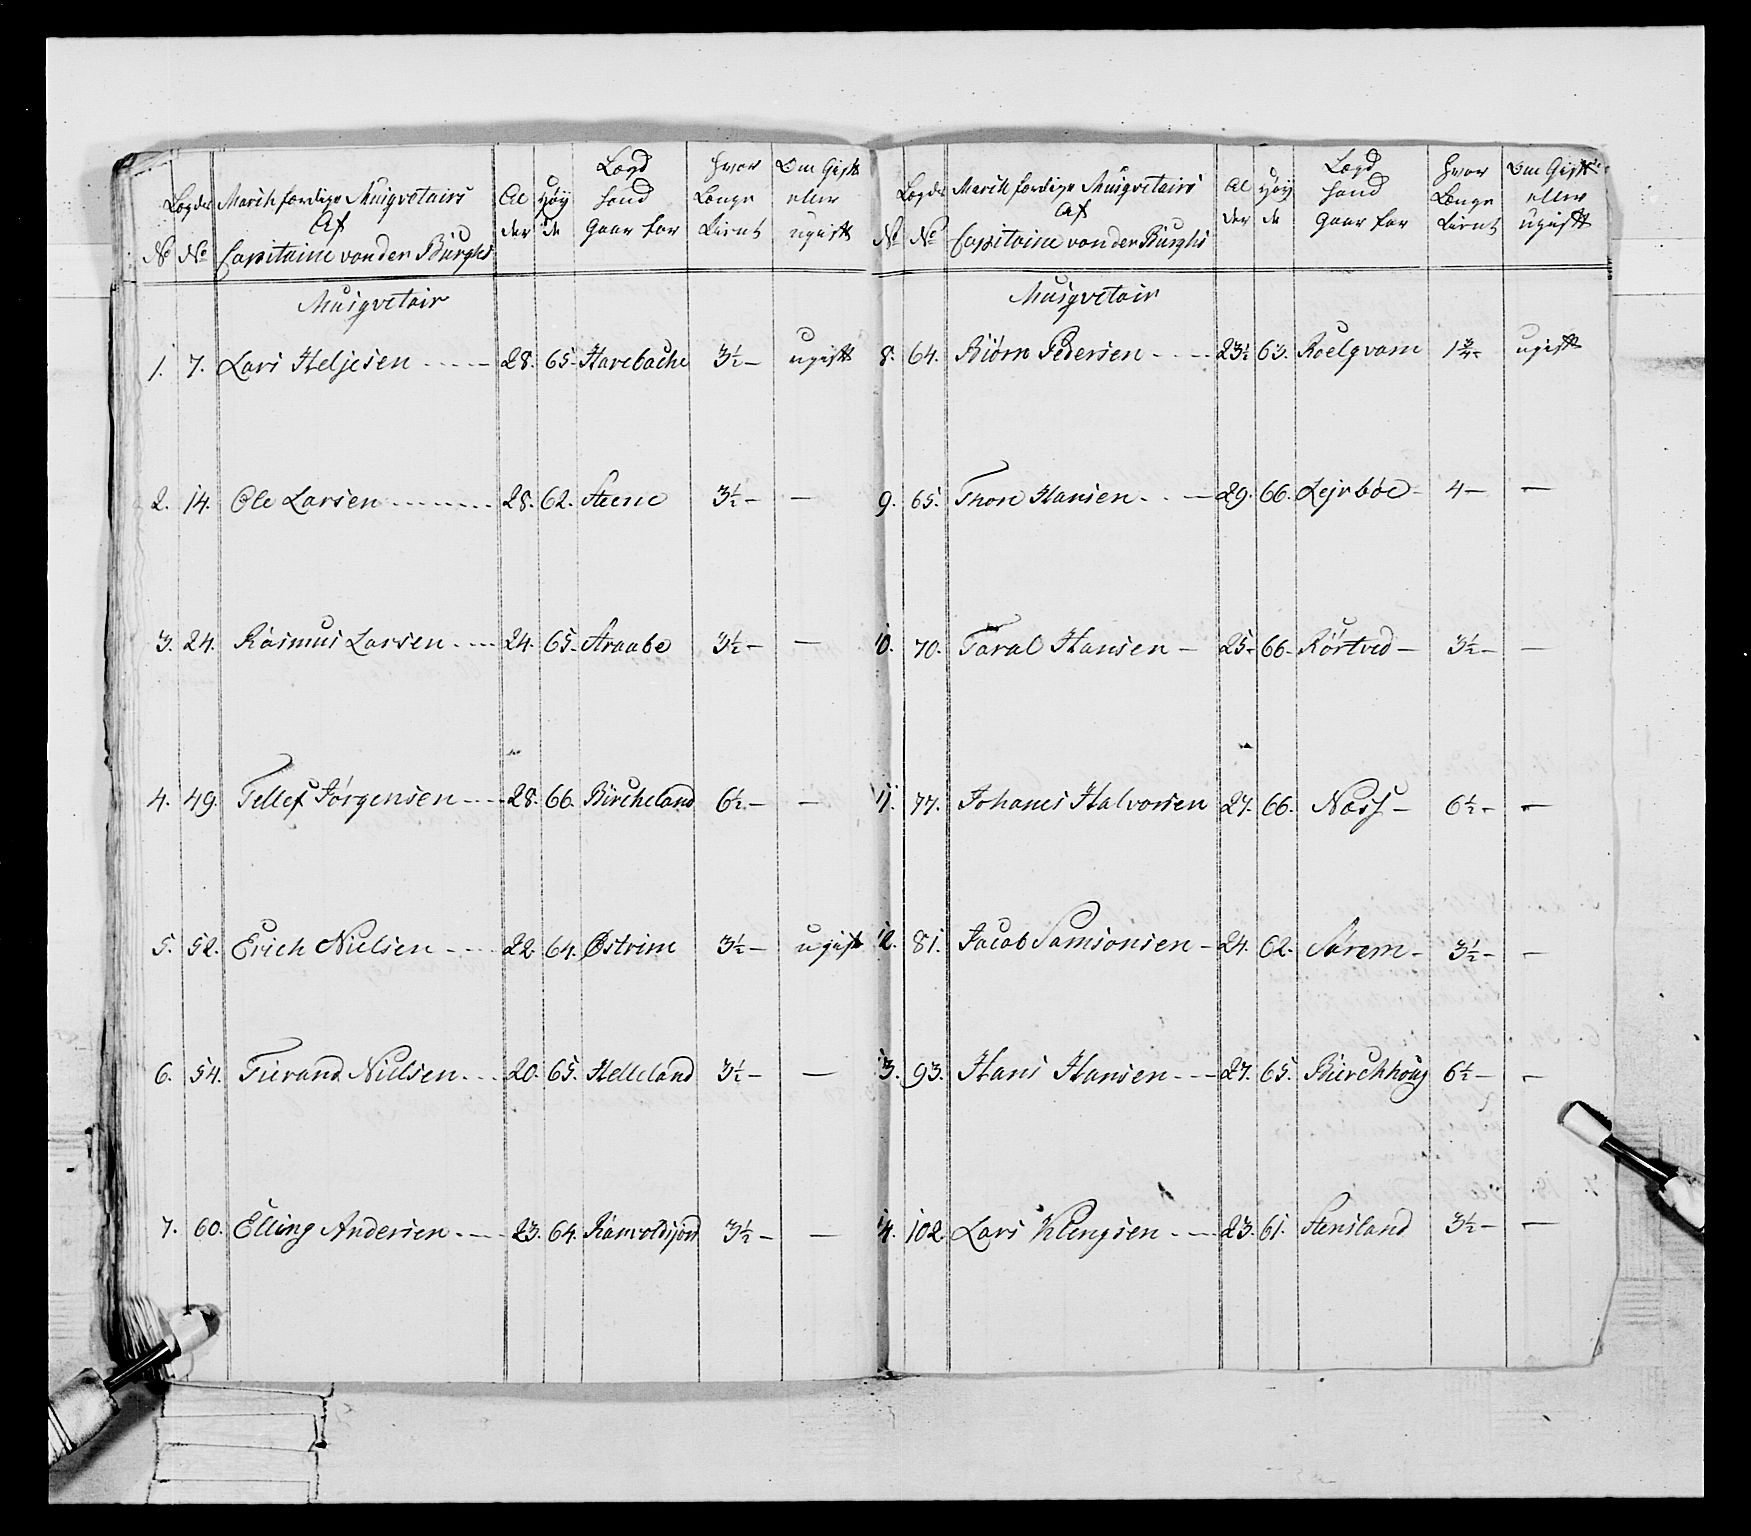 No Legds No Marschfærdige Musqvetairs Af Capitaine von der Bürghs Alder Høyde Lægd Sand Gaar for Hvor Længe Tient Om Gift eller ugift
Musqvetair
1. 7. Lars Heljesen 28. 65. Havebache 3½ ugift
2. 14. Ole Larsen 28. 62. Steene 3½ —
3. 24. Rasmus Larsen 24. 65. Straabe 3½ —
4. 49. Tellef Jørgensen 28. 66. Bircheland 6½ —
5. 52. Erich Nielsen 22. 64. Østrim 3½ ugift
6. 54. Tierand Nielsen 20. 65. Helleland 3½ —
7. 60. Elling Andersen 23. 64. 3½ —
No Legds No Marschfærdige Musqvetairs Af Capitaine von der Bürghs Alder Høyde Lægd Sand Gaar for Hvor Længe Tient Om Gift eller ugift
Musqvetair
8. 64. Biørn Pedersen 23½ 63. Roelqvam 1¾ ugift
9. 65. Thore Hansen 29. 66. Lejrbøe 4 —
10. 70. Taral Hansen 25. 66. Rörtved 3½ —
11. 77. Johanes Halvorsen 27. 66. Næss 6½ —
12. 81. Jacob Samsonsen 24. 62. Sørem 3½ —
13. 93. Hans Hansen 27. 65. Bierchhoug 6½ —
14. 102. Lars Klengsen 23. 61. Stensland 3½ —